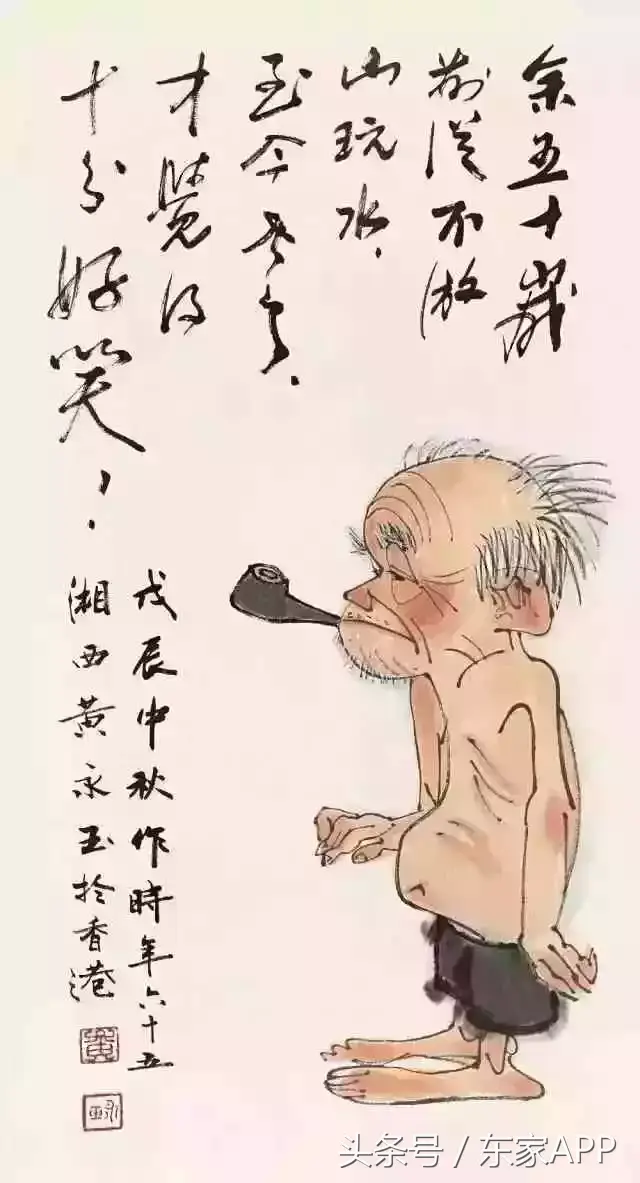 余五十歲
前從不游
山玩水、
至今老矣、
才覺得
十分好笑！
戊辰中秋作時年六十五
湘西黄永玉扵香港
黄
头条号 / 东家APP